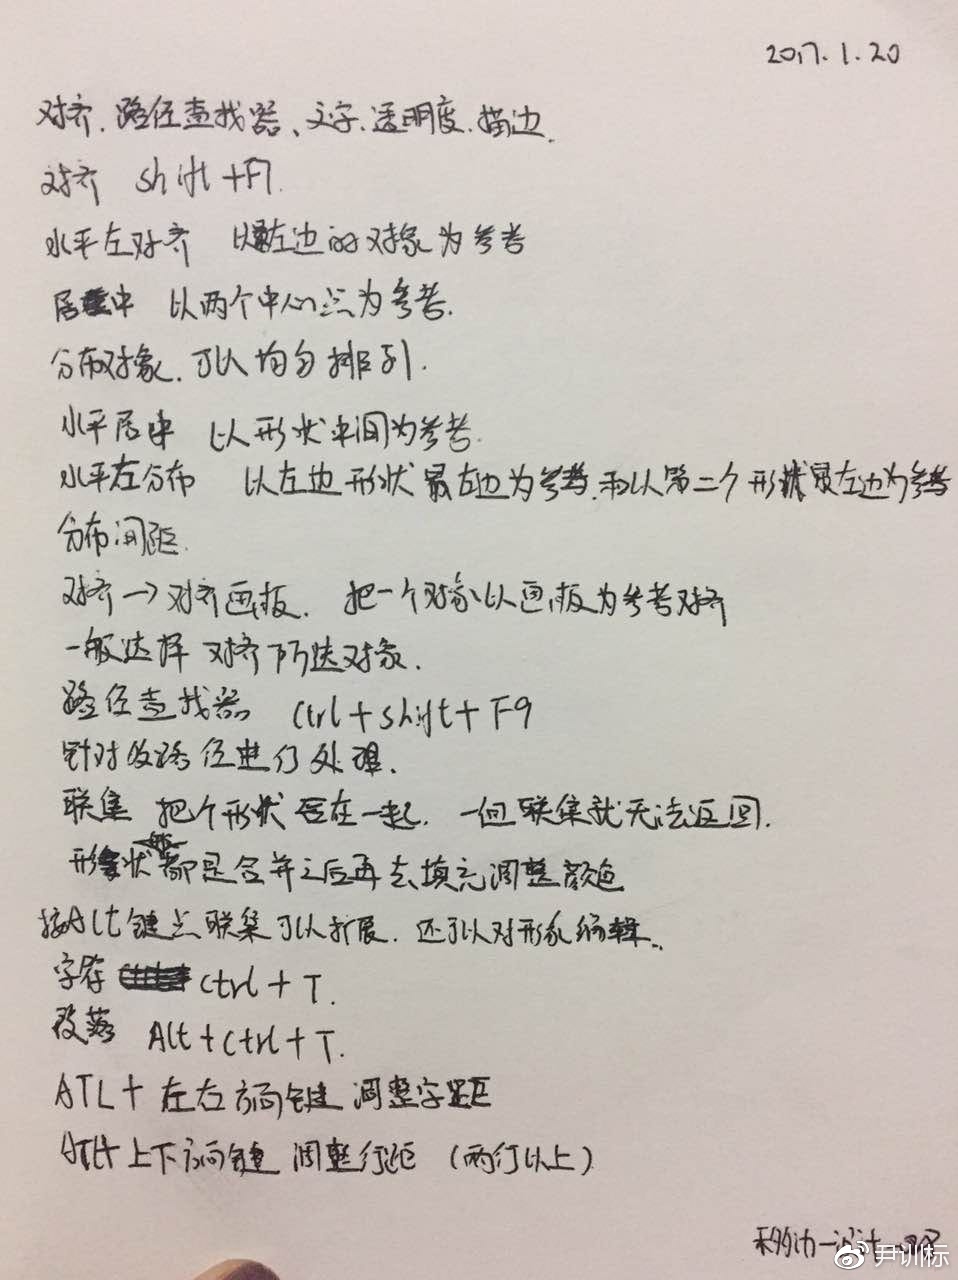 2017.1.20
对齐、路径查找器、文字、透明度、描边
对齐 shift+F7.
水平左对齐 以左边的对象为参考
居中 以两个中心点为参考.
分布对象. 可以均匀排列.
水平居中 以形状中间为参考.
水平左分布 以左边形状最左边为参考.和以第二个形状最左边为参考
分布间距.
对齐→对齐画板. 把一个对象以画板为参考对齐
一般选择对齐所选对象.
路径查找器 Ctrl+shift+F9
针对路径进行处理.
联集 把个形状合在一起. 一但联集就无法返回.
形状都是合并之后再去填充调整颜色
按Alt键点联集可以扩展. 还可以对形象编辑.
字符 Ctrl+T.
段落 Alt+Ctrl+T.
ATL+左右方向键调整字距
ATL+上下方向键 调整行距 (两行以上)
@尹训标